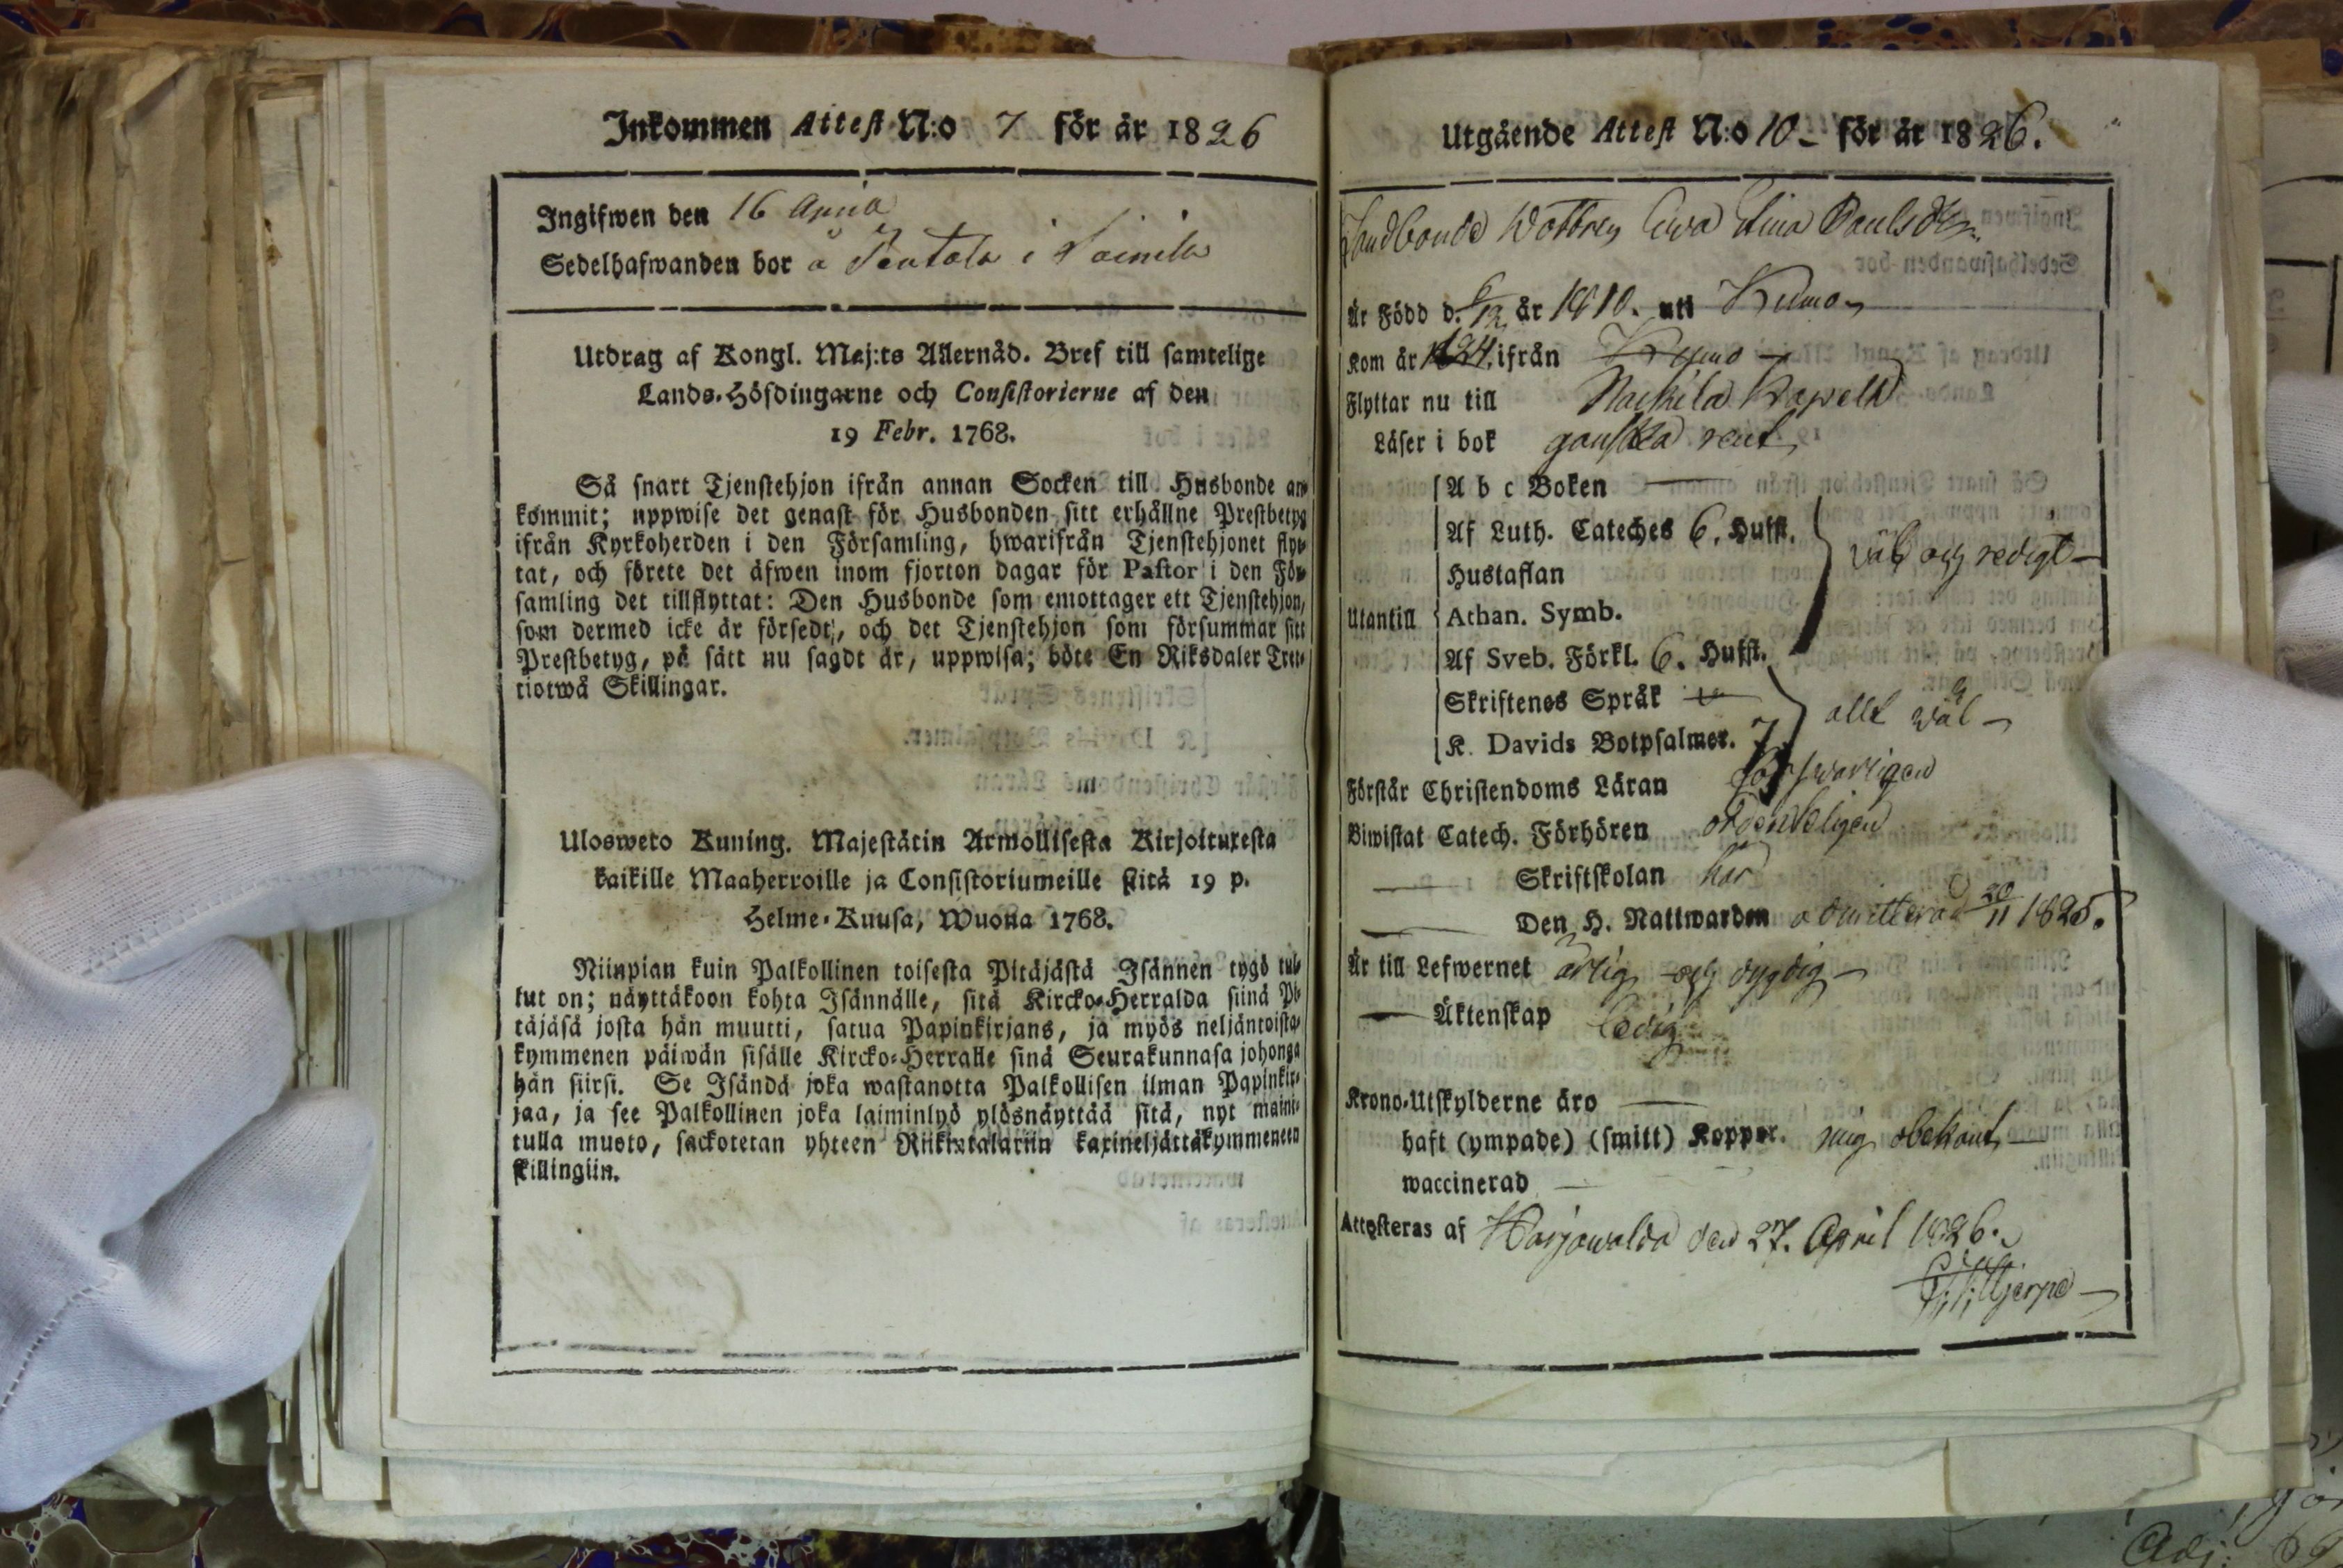 Inkommen Attest N:o 7 för år 1826
Ingifwen den 16
Sedelhafwanden bor å i
Utdrag af Kongl. Maj:ts Allernåd. Bref till samtelige
Lands-Höfdingarne och Consistorierne af den
19 Febr. 1768.
Så snart Tjenstehjon ifrån annan Socken till Husbonde an-
kommit; uppwise det genast för Husbonden sitt erhållne Prestbetyg
ifrån Kyrkoherden i den Församling, hwarifrån Tjenstehjonet flyt-
tat, och förete det äfwen inom fjorton dagar för Pastor i den För-
samling det tillflyttat: Den Husbonde som emottager ett Tjenstehjon,
som dermed icke är försedt, och det Tjenstehjon som försummar sitt
Prestbetyg, på sätt nu sagdt är, uppwisa; böte En Riksdaler Tret-
tiotwå Skillingar.
Ulosweto Kuning. Majestätin Armollisesta Kirjoituxesta
kaikille Maaherroille ja Consistoriumeille siitä 19 p.
Helme-Kuusa, Wuonna 1768.
Niinpian kuin Palkollinen toisesta Pitäjästä Isännen tygö tul-
lut on; näyttäkoon kohta Isännälle, sitä Kircko-Herralda siinä Pi-
täjäsä josta hän muutti, satua Papinkirjans, ja myös neljäntoista-
kymmenen päiwän sisälle Kircko-Herralle sinä Seurakunnasa johonga
hän siirsi. Se Isändä joka wastanotta Palkollisen ilman Papinkir-
jaa, ja see Palkollinen joka laiminlyö ylösnäyttää sitä, nyt maini-
tulla muoto, sackotetan yhteen Riikintalariin kaxineljättäkymmeneen
skillingiin.
Utgående Attest N:o 10 för år 1826.
Landbonde Dottren Ewa Stina Paulsdr
Är Född d. 6/12 år 1810. uti Kumo
Kom år 1824. ifrån Kumo
Flyttar nu till Nackila
Läser i bok ganska rent
A b c Boken —
Af Luth. Cateches 6. Hufst.
Hustaflan
wäl och redigt —
Utantill Athan. Symb.
Af Sveb. Förkl. 6. Hufst.
Skriftenes Språk
allt wäl —
K. Davids Botpsalmer. 7
Förstår Christendoms Läran försvarligen
Biwistat Catech. Förhören ordenteligen
— Skriftskolan här
— Den H. Nattwarden admitterad 20/11 1825.
Är till Lefwernet ärlig och dygdig —
— Äktenskap ledig
Krono-Utskylderne äro —
haft (ympade) (smitt) Koppor. mig obekant —
waccinerad —
Attesteras af Harjawalda den 27. April 1826.